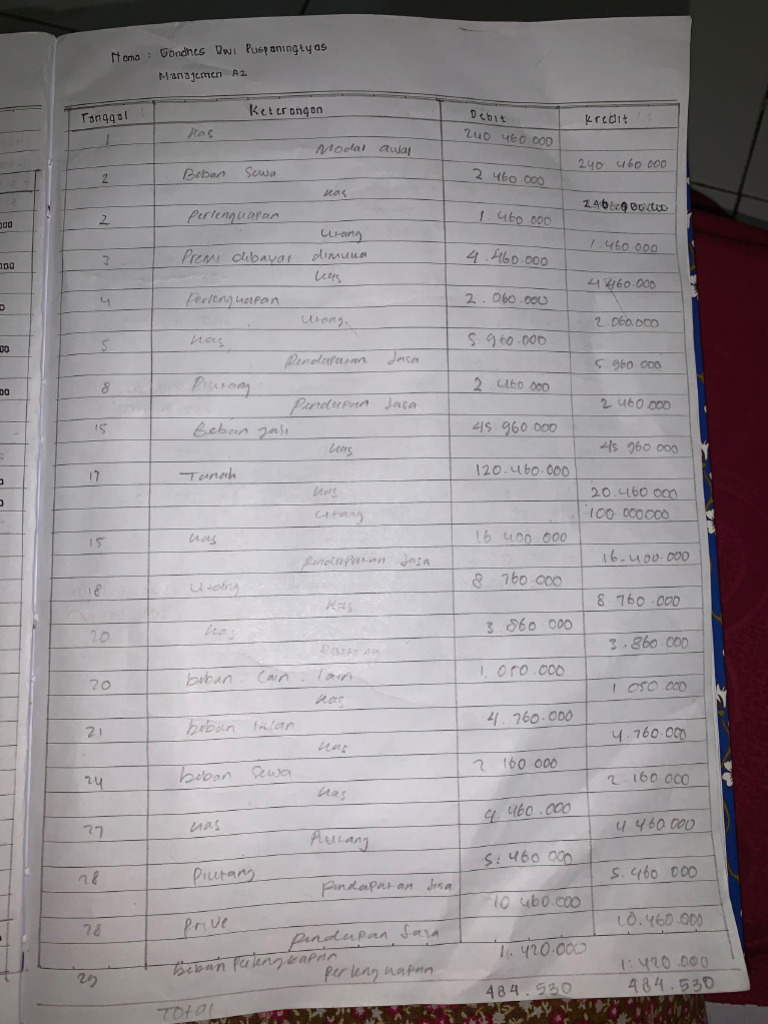 Nama : Gandnes Dwi Puspaningtyas
Manajemen A2
Tanggal Keterangan Debit Kredit
1 Kas 240 460 000
Modal awal 240 460 000
2 Beban Sewa 2 460.000
Kas
2 Perlengkapan 1.460 000
Utang 1.460.000
3 Premi dibayar dimuka 4.460.000
Kas 4 460.000
4 Perlengkapan 2.060.000
Utang. 2 060.000
5 Kas 5.960.000
Pendapatan Jasa 5.960 000
8 Piutang 2 460 000
Pendapan Jasa 2 460.000
15 Beban gaji 45.960 000
Kas 45 960.000
17 Tanah 120.460.000
Kas 20.460 000
Utang 100 000000
15 Kas 16 400 000
pendapatan Jasa 16.400.000
18 Utang 8 760.000
Kas 8.760.000
20 Kas 3.860 000
3.860 000
20 beban lain . lain 1.050.000
Kas 1 050 000
21 beban iklan 4.760.000
Kas 4.760.000
24 beban Sewa 2 160 000
Kas 2 160.000
27 Kas 4.460.000
Piutang 4 460 000
28 Piutang 5.460 000
pindapatan Jasa 5.460 000
28 prive 10 460.000
pindupan Jasa 10.460.000
29 beban Perlengkapan 1.420.000
perlengkapan 1.420.000
Total 484.530 484.530